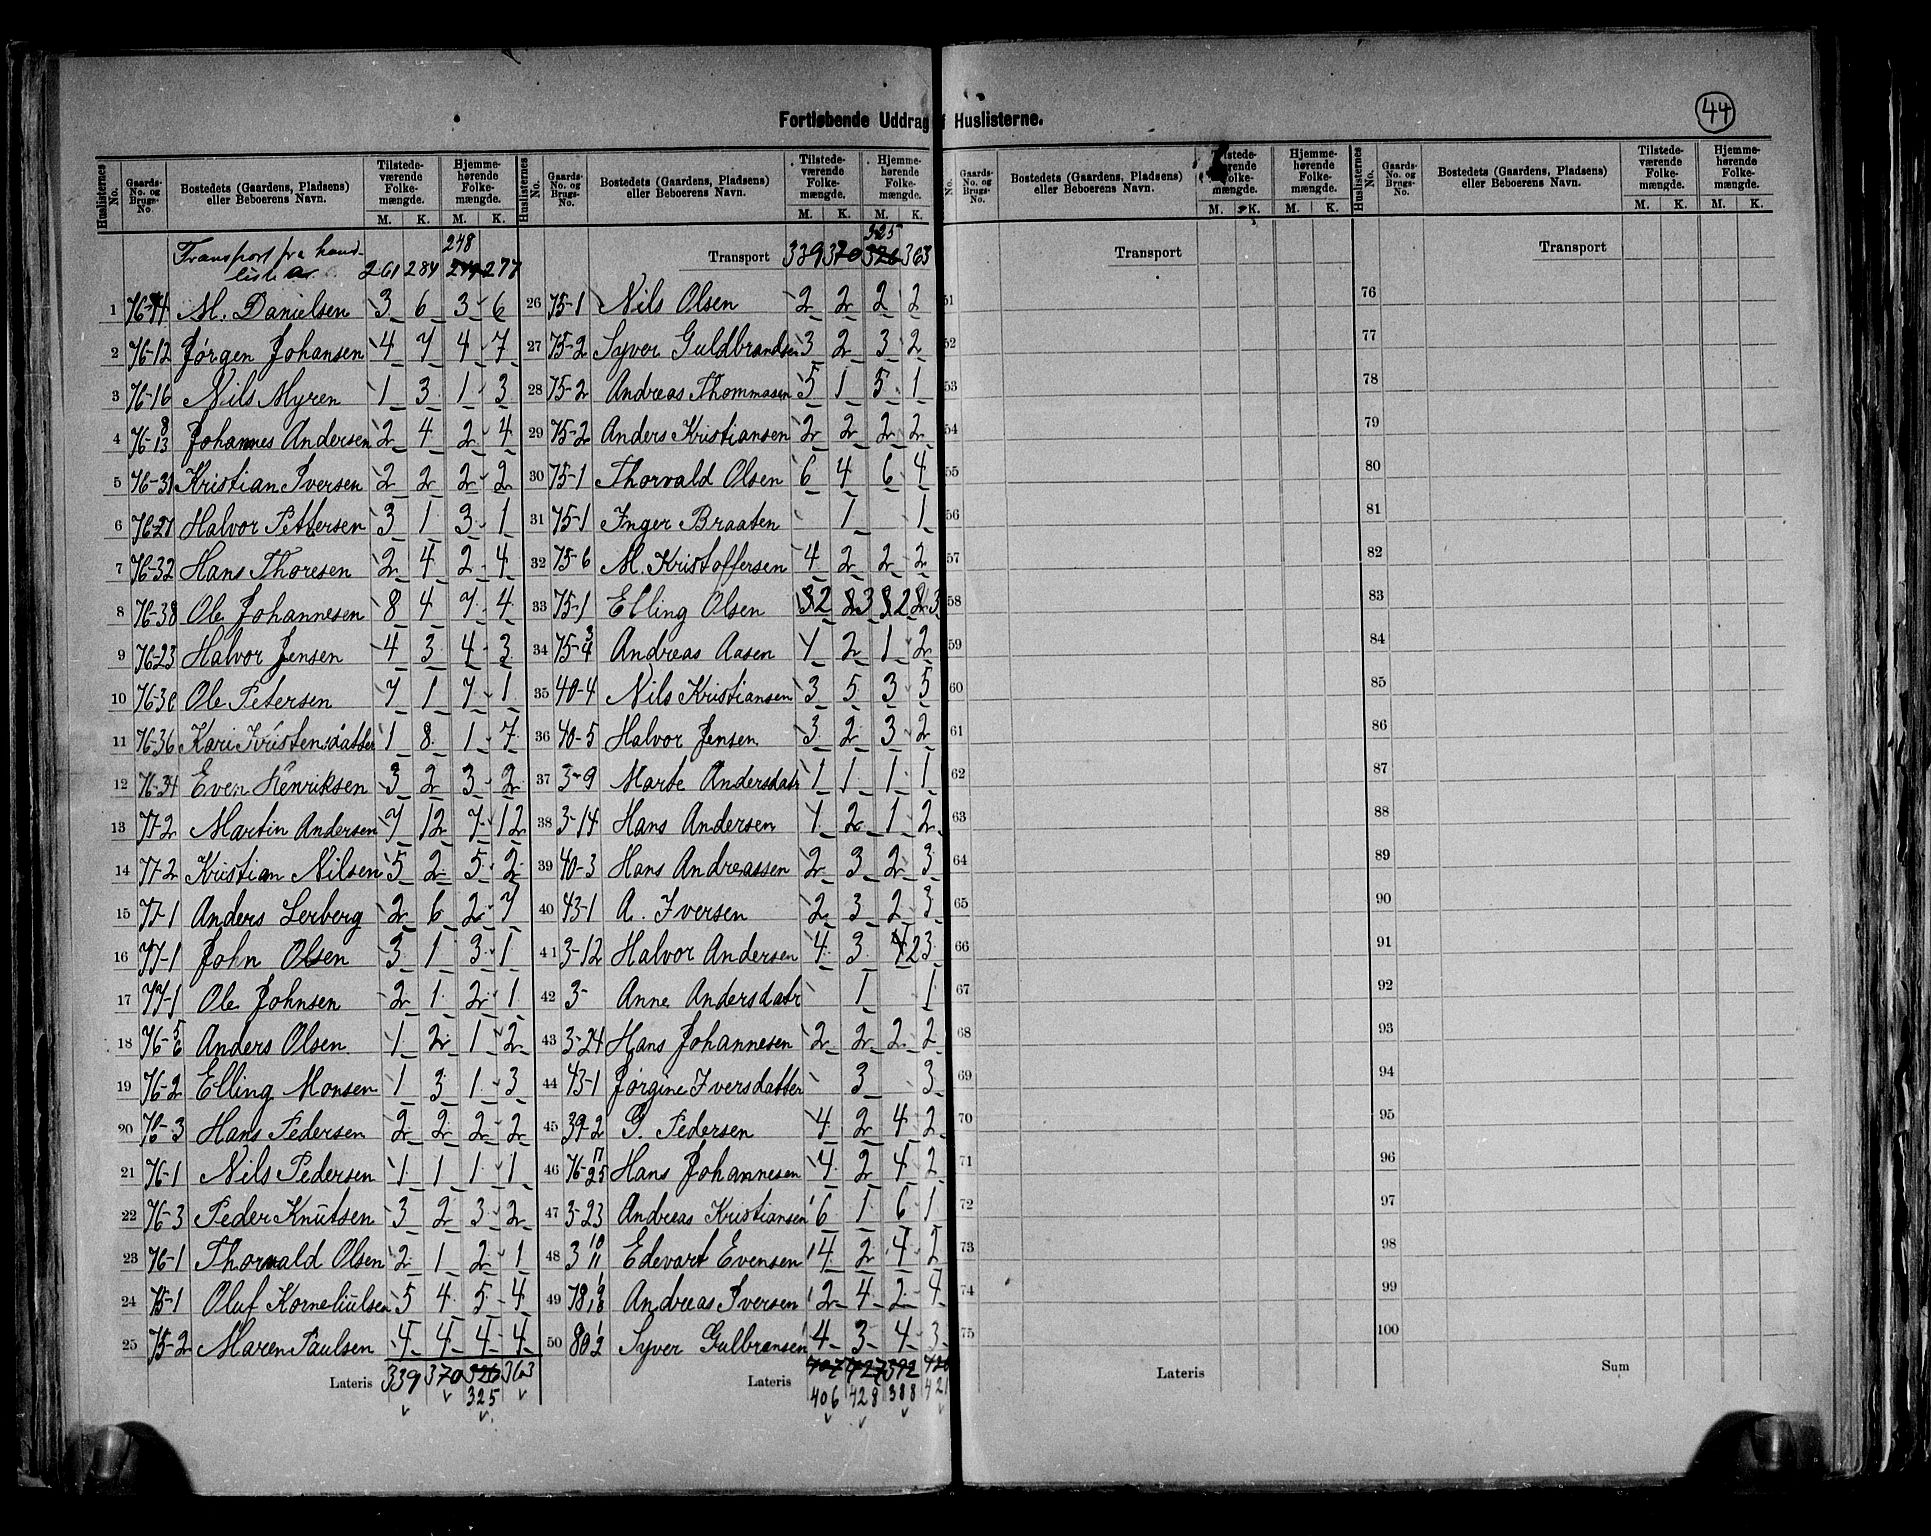 44
Fortløbende Uddrag f Huslisterne.
Huslisternes No. Gaards- No. og Brugs- No. Bostedets (Gaardens, Pladsens) eller Beboerens Navn. Tilstede- værende Folke- mængde. M. K. Hjemme- hørende Folke- mængde. M. K.
Transport fra haand-
liste 261 284 248 277
1 76-14 M. Danielsen 3 6 3 6
2 76-12 Jørgen Johansen 4 7 4 7
3 76-16 Nils Myren 1 3 1 3
4 76-8 13 Johannes Andersen 2 4 2 4
5 76-31 Kristian Iversen 2 2 2 2
6 76-27 Halvor Pettersen 3 1 3 1
7 76-32 Hans Thoresen 2 4 2 4
8 76-38 Ole Johannesen 8 4 7 4
9 76-23 Halvor Jensen 4 3 4 3
10 76-30 Ole Petersen 7 1 7 1
11 76-36 Kari Kristensdatter 1 8 1 7
12 76-34 Even Henriksen 3 2 3 2
13 77-2 Martin Andersen 7 12 7 12
14 77-2 Kristian Nilsen 5 2 5 2
15 77-1 Anders Lerberg 2 6 2 7
16 77-1 John Olsen 3 1 3 1
17 77-1 Ole Johnsen 2 1 2 1
18 76-5 6 Anders Olsen 1 2 1 2
19 76-2 Elling Monsen 1 3 1 3
20 76-3 Hans Pedersen 2 2 2 2
21 76-1 Nils Pedersen 1 1 1 1
22 76-3 Peder Knutsen 3 2 3 2
23 76-1 Thorvald Olsen 2 1 2 1
24 75-1 Oluf Korneliulsen 5 4 5 4
25 75-2 Maren Paulsen 4 4 4 4
Lateris 339 370 326 363
325
Huslisternes No. Gaards- No. og Brugs- No. Bostedets (Gaardens, Pladsens) eller Beboerens Navn. Tilstede- værende Folke- mængde. M. K. Hjemme- hørende Folke- mængde. M. K.
325
Transport 339 370 326 363
26 75-1 Nils Olsen 2 2 2 2
27 75-2 Syver Guldbrandsen 3 2 3 2
28 75-2 Andreas Thommasen 5 1 5 1
29 75-2 Anders Kristiansen 2 2 2 2
30 75-1 Thorvald Olsen 6 4 6 4
31 75-1 Inger Braaten 1 1
32 75-6 M. Kristoffersen 4 2 2 2
33 75-1 Elling Olsen 2 3 2 3
34 75-3 4 Andreas Aasen 1 2 1 2
35 40-4 Nils Kristiansen 3 5 3 5
36 40-5 Halvor Jensen 3 2 3 2
37 3-9 Marte Andersdatr 1 1 1 1
38 3-14 Hans Andersen 1 2 1 2
39 40-3 Hans Andreassen 2 3 2 3
40 43-1 A. Iversen 2 3 2 3
41 3-12 Halvor Andersen 4 3 2 3
42 3- Anne Andersdatr 1 1
43 3-24 Hans Johannesen 2 2 2 2
44 43-1 Jørgine Iversdatter 3 3
45 39-2 G. Pedersen 4 2 4 2
46 76-17 25 Hans Johannesen 4 2 4 2
47 3-23 Andreas Kristiansen 6 1 6 1
48 3 10 11 Edevart Evensen 4 2 4 2
49 78 Andreas Iversen 2 4 2 4
50 80 1 2 Syver Gulbransen 4 3 4 3
Lateris 407 427 392 420
406 428 388 421
No. Gaards- No. og Brugs- No. Bostedets (Gaardens, Pladsens) eller Beboerens Navn. Tilstede- værende Folke- mængde. M. K. Hjemme- hørende Folke- mængde. M. K.
Transport
51
52
53
54
55
56
57
58
59
60
61
62
63
64
65
66
67
68
69
70
71
72
73
74
75
Lateris
Huslisternes No. Gaards- No. og Brugs- No. Bostedets (Gaardens, Pladsens) eller Beboerens Navn. Tilstede- værende Folke- mængde. M. K. Hjemme- hørende Folke- mængde. M. K.
Transport
76
77
78
79
80
81
82
83
84
85
86
87
88
89
90
91
92
93
94
95
96
97
98
99
100
Sum